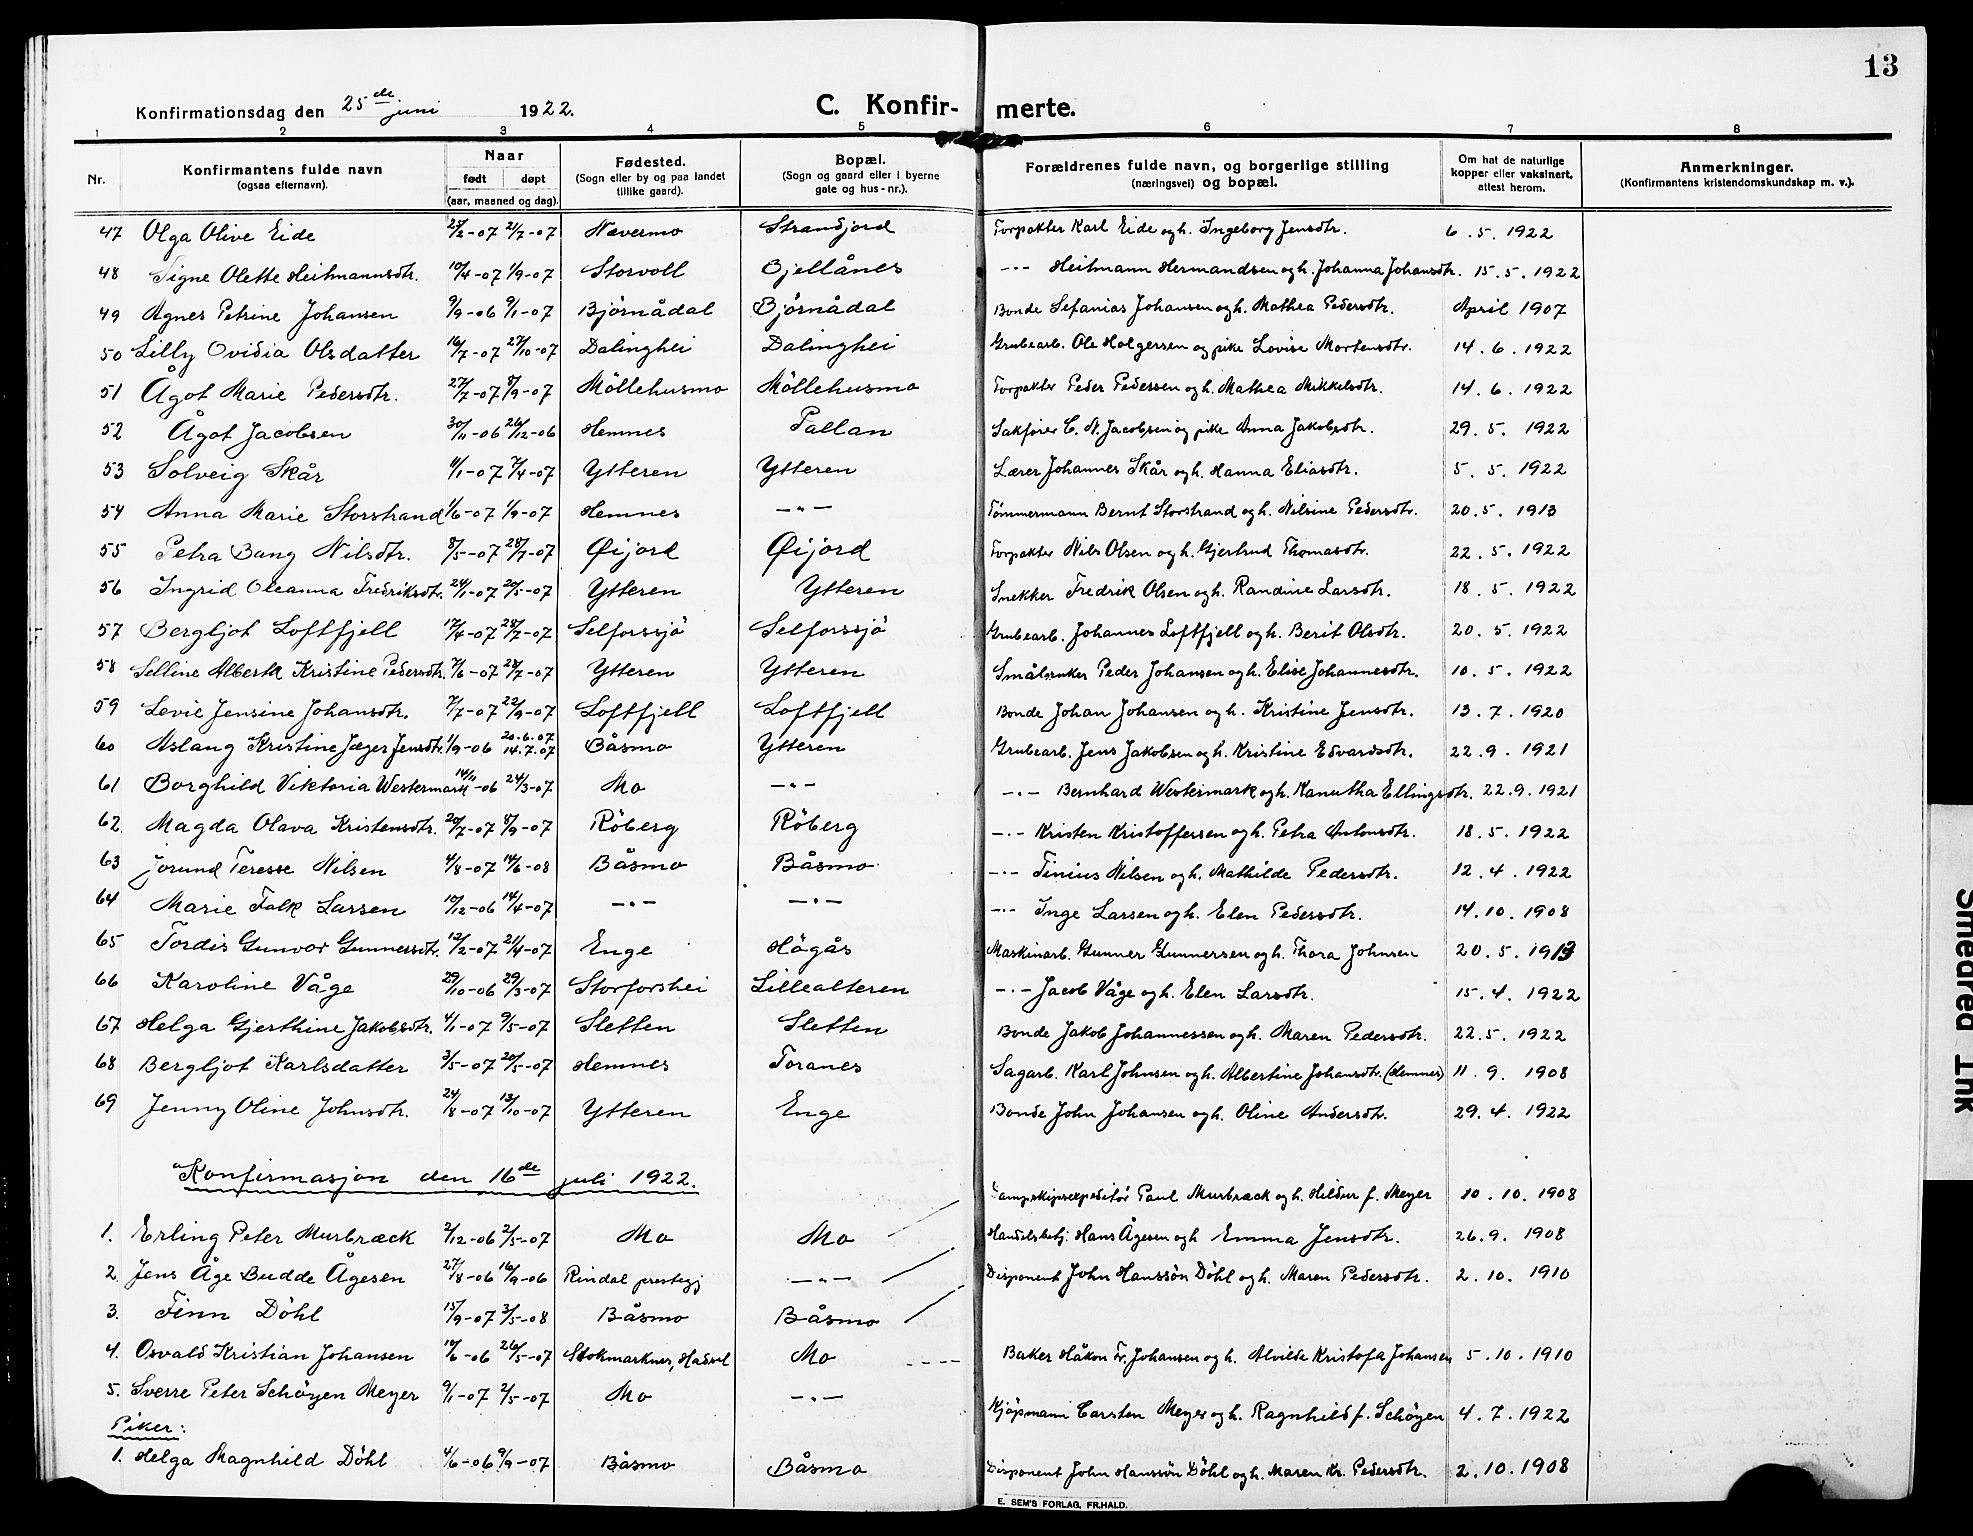 13
Konfirmationsdag den 25de juni 1922. C. Konfirmerte.
1 2 3 4 5 6 7 8
Nr. Konfirmantens fulde navn (ogsaa efternavn). Naar født døpt (aar, maaned og dag). Fødested. (Sogn eller by og paa landet tillike gaard). Bopæl. (Sogn og gaard eller i byerne gate og hus-nr.). Forældrenes fulde navn, og borgerlige stilling (næringsvei) og bopæl. Om hat de naturlige kopper eller vaksinert, attest herom. Anmerkninger. (Konfirmantens kristendomskundskap m. v.).
47 Olga Olive Eide 27/2-07 21/7-07 Nævermo Strandjord Forpakter Karl Eide og h. Ingeborg Jensdtr. 6.5.1922
48 Signe Olette Heitmannsdtr. 10/4-07 1/9-07 Storvoll Bjellånes -"- Heitmann Hermandsen og h. Johanna Johansdtr. 15.5.1922
49 Agnes Petrine Johansen 9/9-06 9/1-07 Björnådal Björnådal Bonde Sefanias Johansen og h. Mathea Pedersdtr. April 1907
50 Lilly Ovidia Olsdatter 16/7-07 27/10-07 Dalinghei Dalinghei Grubearb. Ole Holgersen og pike Lovise Mortensdtr. 14.6.1922
51 Ågot Marie Pedersdtr. 27/7-07 8/9-07 Möllehusmo Möllehusmo Forpakter Peder Pedersen og h. Mathea Mikkelsdtr. 14.6.1922
52 Ågot Jacobsen 30/11-06 26/12-06 Hemnes Pallan Sakfører C. N. Jacobsen og pike Anna Jakobsdtr. 29.5.1922
53 Solveig Skår 4/1-07 7/4-07 Ytteren Ytteren Lærer Johannes Skår og h. Hanna Eliasdtr. 5.5.1922
54 Anna Marie Storstrand 1/6-07 1/9-07 Hemnes -"- Tömmermann Bernt Storstrand og h. Nilsine Pedersdtr. 20.5.1913
55 Petra Bang Nilsdtr. 8/5-07 28/7-07 Øijord Øijord Forpakter Nils Olsen og h. Gjertrud Thomasdtr. 22.5.1922
56 Ingrid Oleanna Fredriksdtr. 24/1-07 20/5-07 Ytteren Ytteren Snekker Fredrik Olsen og h. Randine Larsdtr. 18.5.1922
57 Bergljot Loftfjell 17/4-07 28/7-07 Selforssjö Selforssjö Grubearb. Johannes Loftfjell og h. Berit Olsdtr. 20.5.1922
58 Selline Alberta Kristine Pedersdtr. 7/6-07 28/7-07 Ytteren Ytteren Småbruker Peder Johansen og h. Elise Johannesdtr. 10.5.1922
59 Levie Jensine Johansdtr. 7/7-07 22/9-07 Loftfjell Loftfjell Bonde Johan Johansen og h. Kristine Jensdtr. 13.7.1920
60 Aslaug Kristine Jæger Jensdtr. 1/9-06 20.6.07 14.7.07 Båsmo Ytteren Grubearb. Jens Jakobsen og h. Kristine Edvardsdtr. 22.9.1921
61 Borghild Viktoria Westermark 14/11-06 24/3-07 Mo -"- -"- Bernhard Westermark og h. Kanutha Ellingsdtr. 22.9.1921
62 Magda Olava Kristensdtr. 20/7-07 8/9-07 Röberg Röberg -"- Kristen Kristoffersen og h. Petra Antonsdtr. 18.5.1922
63 Jorund Teresse Nilsen 4/8-07 14/6-08 Båsmo Båsmo -"- Tinius Nilsen og h. Mathilde Pedersdtr. 12.4.1922
64 Marie Falk Larsen 10/12-06 14/4-07 -"- -"- -"- Inge Larsen og h. Elen Pedersdtr. 14.10.1908
65 Tordis Gunvor Gunnersdtr. 12/2-07 21/4-07 Enge Högås Maskinarb. Gunner Gunnersen og h. Thora Johnsen 20.5.1913
66 Karoline Våge 29/10-06 29/3-07 Storforshei Lillealteren -"- Jacob Våge og h. Elen Larsdtr. 15.4.1922
67 Helga Gjerthine Jakobsdtr. 4/1-07 9/5-07 Sletten Sletten Bonde Jakob Johannessen og h. Maren Pedersdtr. 22.5.1922
68 Bergljot Karlsdatter 3/5-07 20/5-07 Hemnes Toranes Sagarb. Karl Johnsen og h. Albertine Johansdtr. (Hemnes) 11.9.1908
69 Jenny Oline Johnsdtr. 24/8-07 13/10-07 Ytteren Enge Bonde John Johansen og h. Oline Andersdtr. 29.4.1922
Konfirmasjon den 16de juli 1922.
Dampskipsexpeditör Paul Musbræck og h. Hildur f. Meyer 10.10.1908
1. Erling Peter Musbræck 2/12-06 2/5-07 Mo Mo Handelsbetj. Hans Ågesen og h Emma Jensdtr. 26.9.1908
2. Jens Åge Budde Ågesen 27/8-06 16/9-06 Rindal prestegj -"- Disponent John Hanssön Döhl og h. Maren Pedersdtr. 2.10.1910
3. Finn Döhl 15/9-07 3/5-08 Båsmo Båsmo
4. Osvald Kristian Johansen 10/6-06 26/5-07 Stokmarknes, Hadsel Mo Baker Håkon Fr. Johansen og h. Alvilde Kristofa Johansen 5.10.1910
5. Sverre Peter Schöyen Meyer 9/1-07 2/5-07 Mo -"- Kjöpmann Carsten Meyer og h. Ragnhild f. Schöyen 4.7.1922
Piker:
1. Helga Magnhild Döhl 4/6-06 9/9-07 Båsmo Båsmo Disponent John Hanssön Döhl og h. Maren Kr. Pedersdtr. 2.10.1908
E. SEM'S FORLAG, FR.HALD.
Smedred Ink